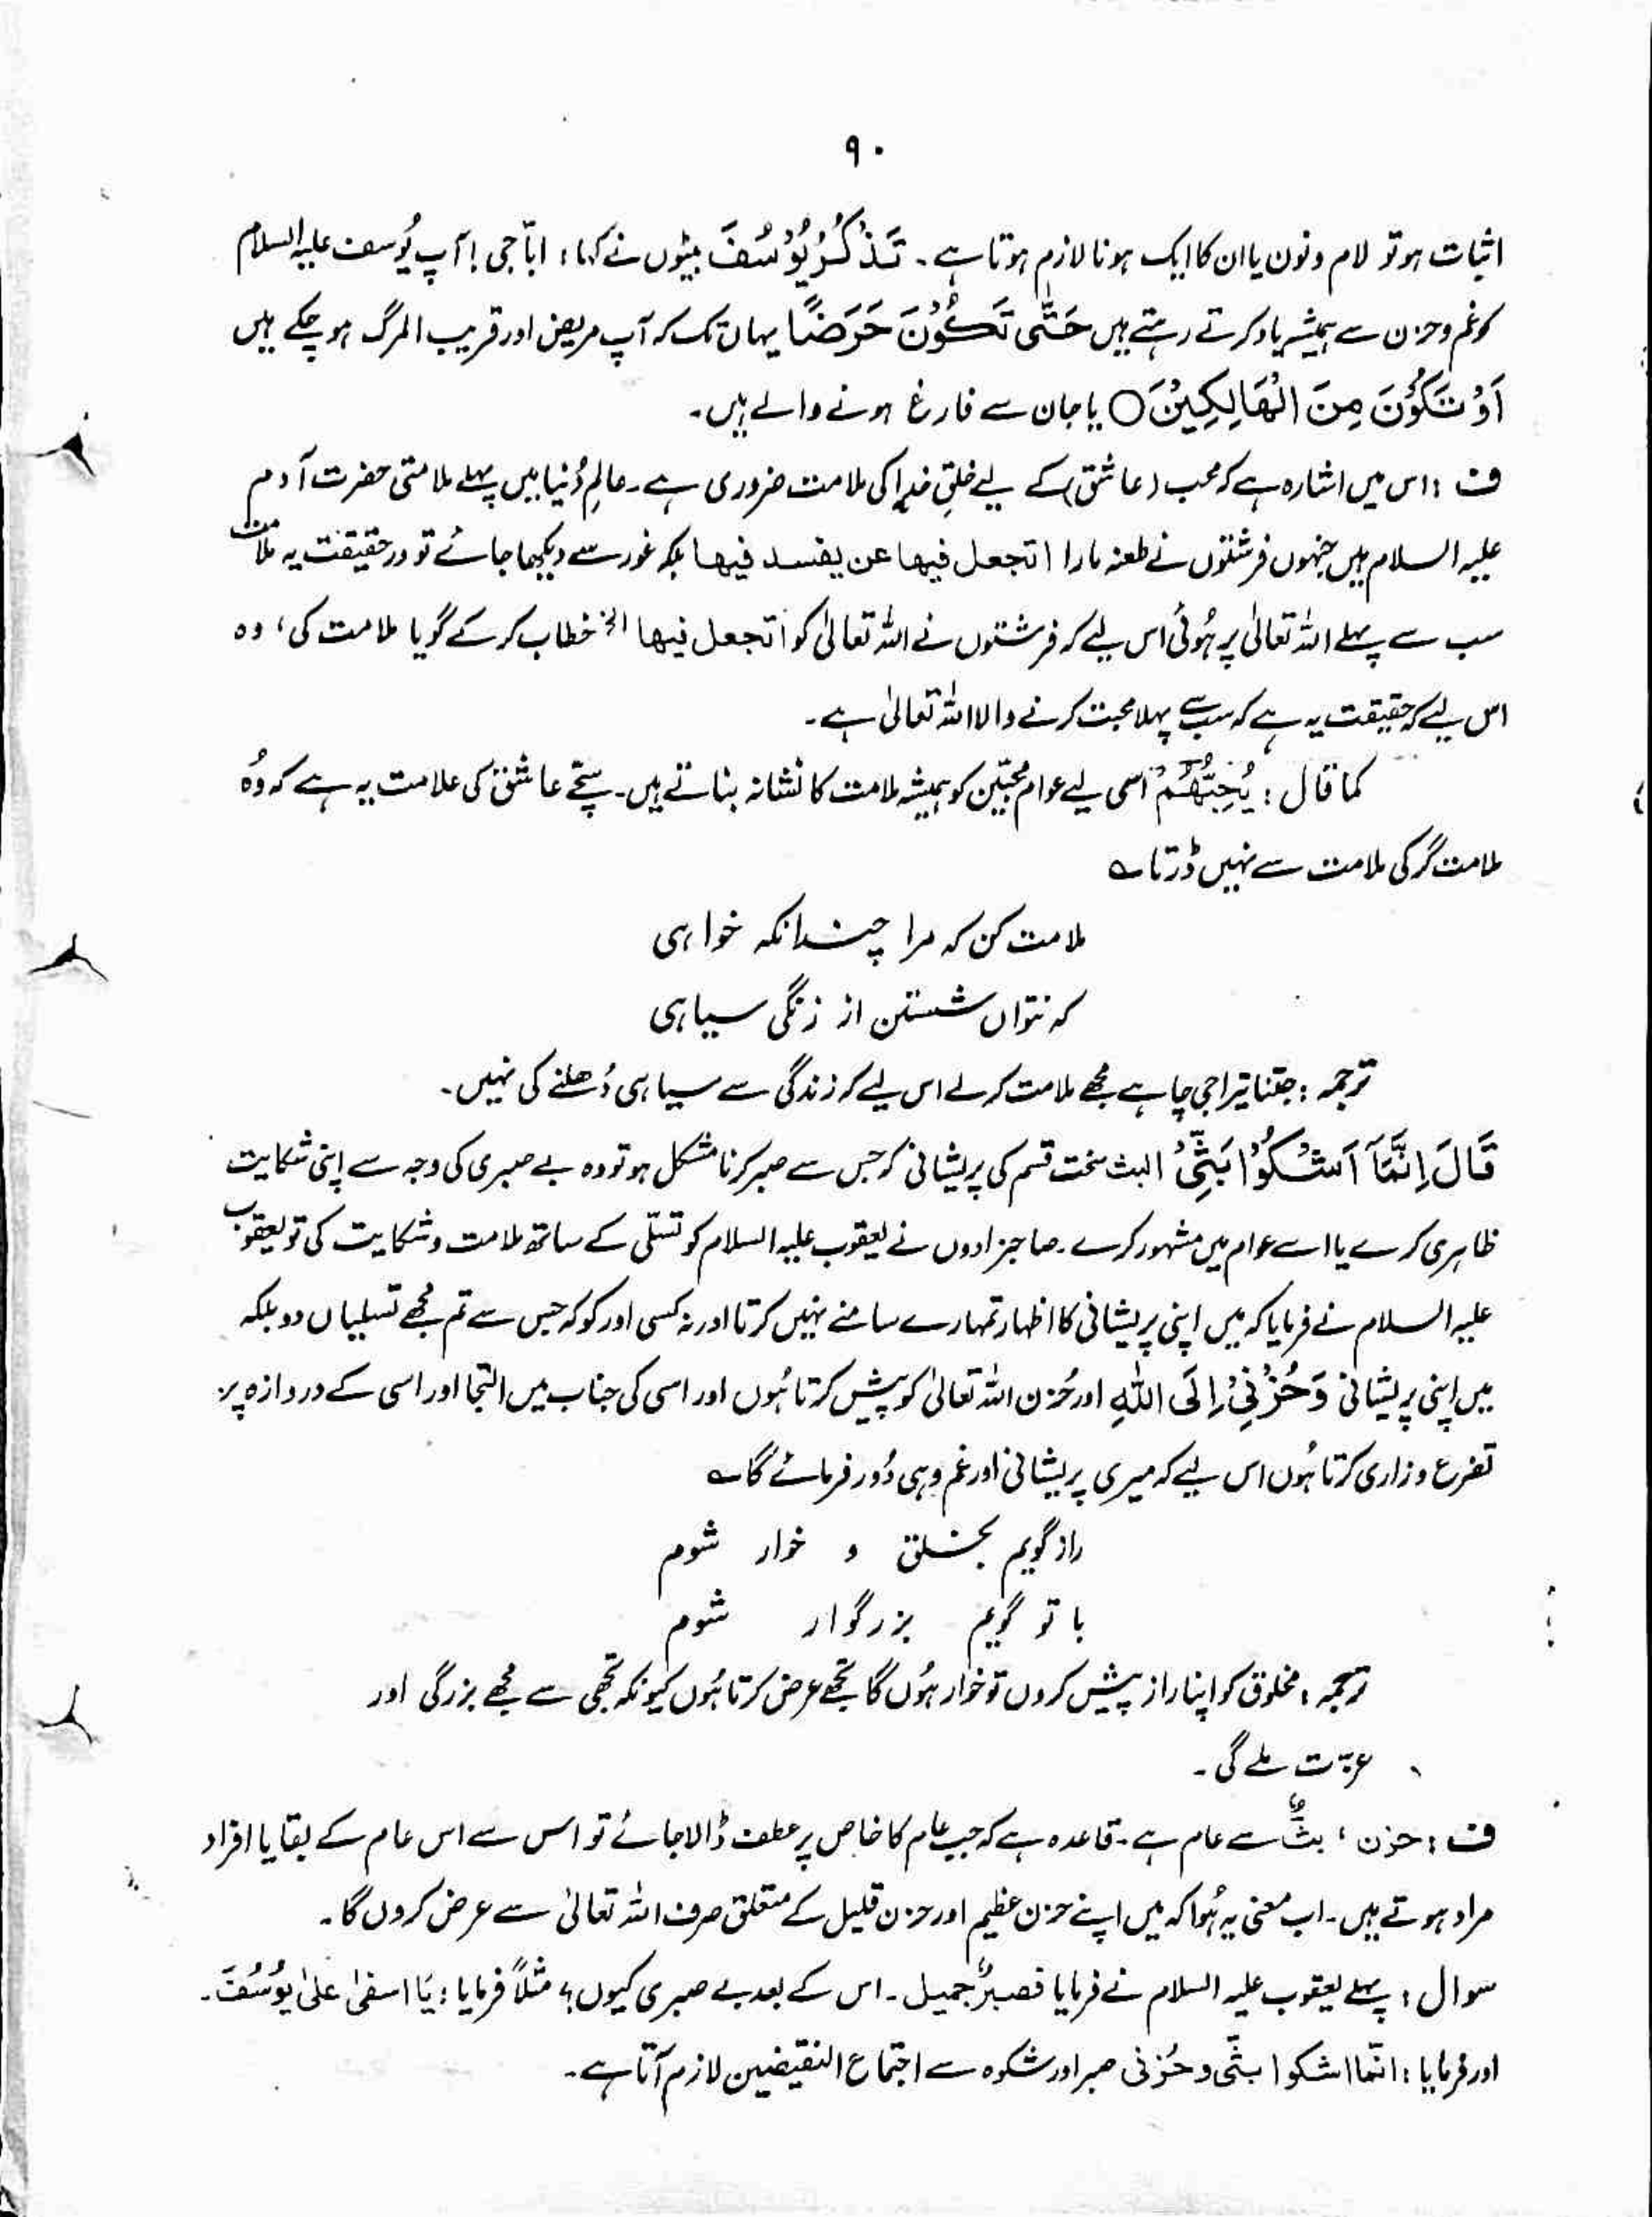 ۹۰
اثبات ہو تو لام و نون یا ان کا ایک ہونا لازم ہوتا ہے۔ تَذْكُرُ يُوْسُفَ بیٹوں نے کہا؛ ابّا جی! آپ یُوسف علیہ السلام
کو غم و حزن سے ہمیشہ یاد کرتے رہتے ہیں حَتّٰى تَكُوْنَ حَرَضًا یہاں تک کہ آپ مریض اور قریب المرگ ہو چکے ہیں
اَوْ تَكُوْنَ مِنَ الْهَالِكِيْنَ ○ یا جان سے فارغ ہونے والے ہیں۔
ف : اس میں اشارہ ہے کہ محب (عاشق) کے لیے خلقِ خدا کی ملامت ضروری ہے۔ عالمِ دُنیا میں پہلے ملامتی حضرت آدم
علیہ السلام ہیں جنہوں فرشتوں نے طعنہ مارا اتجعل فیھا عن یفسد فیھا بلکہ غور سے دیکھا جائے تو درحقیقت یہ ملامت
سب سے پہلے اللہ تعالیٰ پر ہُوئی اس لیے کہ فرشتوں نے اللہ تعالیٰ کو اتجعل فیھا الخ خطاب کرکے گویا ملامت کی، وہ
اس لیے کہ حقیقت یہ ہے کہ سب سے پہلا محبت کرنے والا اللہ تعالیٰ ہے۔
کما قال : یُحِبُّهُمْ اسی لیے عوام محبّین کو ہمیشہ ملامت کا نشانہ بناتے ہیں۔ سچّے عاشق کی علامت یہ ہے کہ وُہ
ملامت گر کی ملامت سے نہیں ڈرتا ؎
ملامت کن کہ مرا چندانکہ خواہی
کہ نتواں شستن از زنگی سیاہی
ترجمہ : جتنا تیرا جی چاہے مجھے ملامت کر لے اس لیے کہ زندگی سے سیاہی دُھلنے کی نہیں۔
قَالَ اِنَّمَآ اَشْكُوْا بَثِّیْ البث سخت قسم کی پریشانی کہ جس سے صبر کرنا مشکل ہو تو وہ بے صبری کی وجہ سے اپنی شکایت
ظاہری کرے یا اسے عوام میں مشہور کرے۔ صاجزادوں نے یعقوب علیہ السلام کو تسلّی کے ساتھ ملامت و شکایت کی تو یعقوب
علیہ السلام نے فرمایا کہ میں اپنی پریشانی کا اظہار تمہارے سامنے نہیں کرتا اور نہ کسی اور کو کہ جس سے تم مجھے تسلیاں دو بلکہ
میں اپنی پریشانی وَحُزْنِیْ اِلَى اللهِ اور حُزن اللہ تعالیٰ کو پیش کرتا ہُوں اور اسی کی جناب میں التجا اور اسی کے دروازہ پر
تضرع و زاری کرتا ہُوں اس لیے کہ میری پریشانی اور غم وہی دُور فرمائے گا ؎
راز گویم بخلق و خوار شوم
با تو گویم بزرگوار شوم
ترجمہ : مخلوق کو اپنا راز پیش کروں تو خوار ہُوں گا تجھے عرض کرتا ہُوں کیونکہ تجھی سے مجھے بزرگی اور
عزّت ملے گی۔
ف : حزن ، بثٌّ سے عام ہے۔ قاعدہ ہے کہ جب عام کا خاص پر عطف ڈالا جائے تو اس سے اس عام کے بقایا افراد
مراد ہوتے ہیں۔ اب معنیٰ یہ ہُوا کہ میں اپنے حزن عظیم اور حزن قلیل کے متعلق صرف اللہ تعالیٰ سے عرض کروں گا۔
سوال : پہلے یعقوب علیہ السلام نے فرمایا فصبرٌ جمیل۔ اس کے بعد بے صبری کیوں؟ مثلاً فرمایا : یَا اسفیٰ علیٰ یُوْسُفَ۔
اور فرمایا : انّما اشکوا بثّی و حُزنی صبر اور شکوہ سے اجتماع النقیضین لازم آتا ہے۔